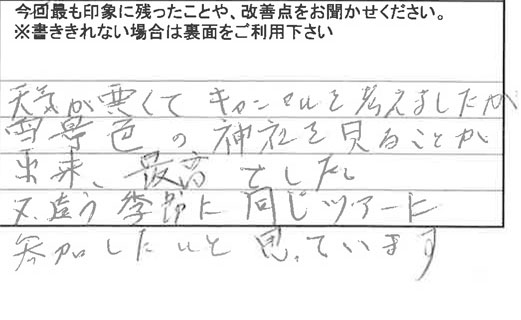 今回最も印象に残ったことや、改善点をお聞かせください。
※書ききれない場合は裏面をご利用下さい
天気が悪くてキャンセルを考えましたが
雪景色の神社を見ることが
出来、最高でした。
又、違う季節に同じツアーに
参加したいと思っています